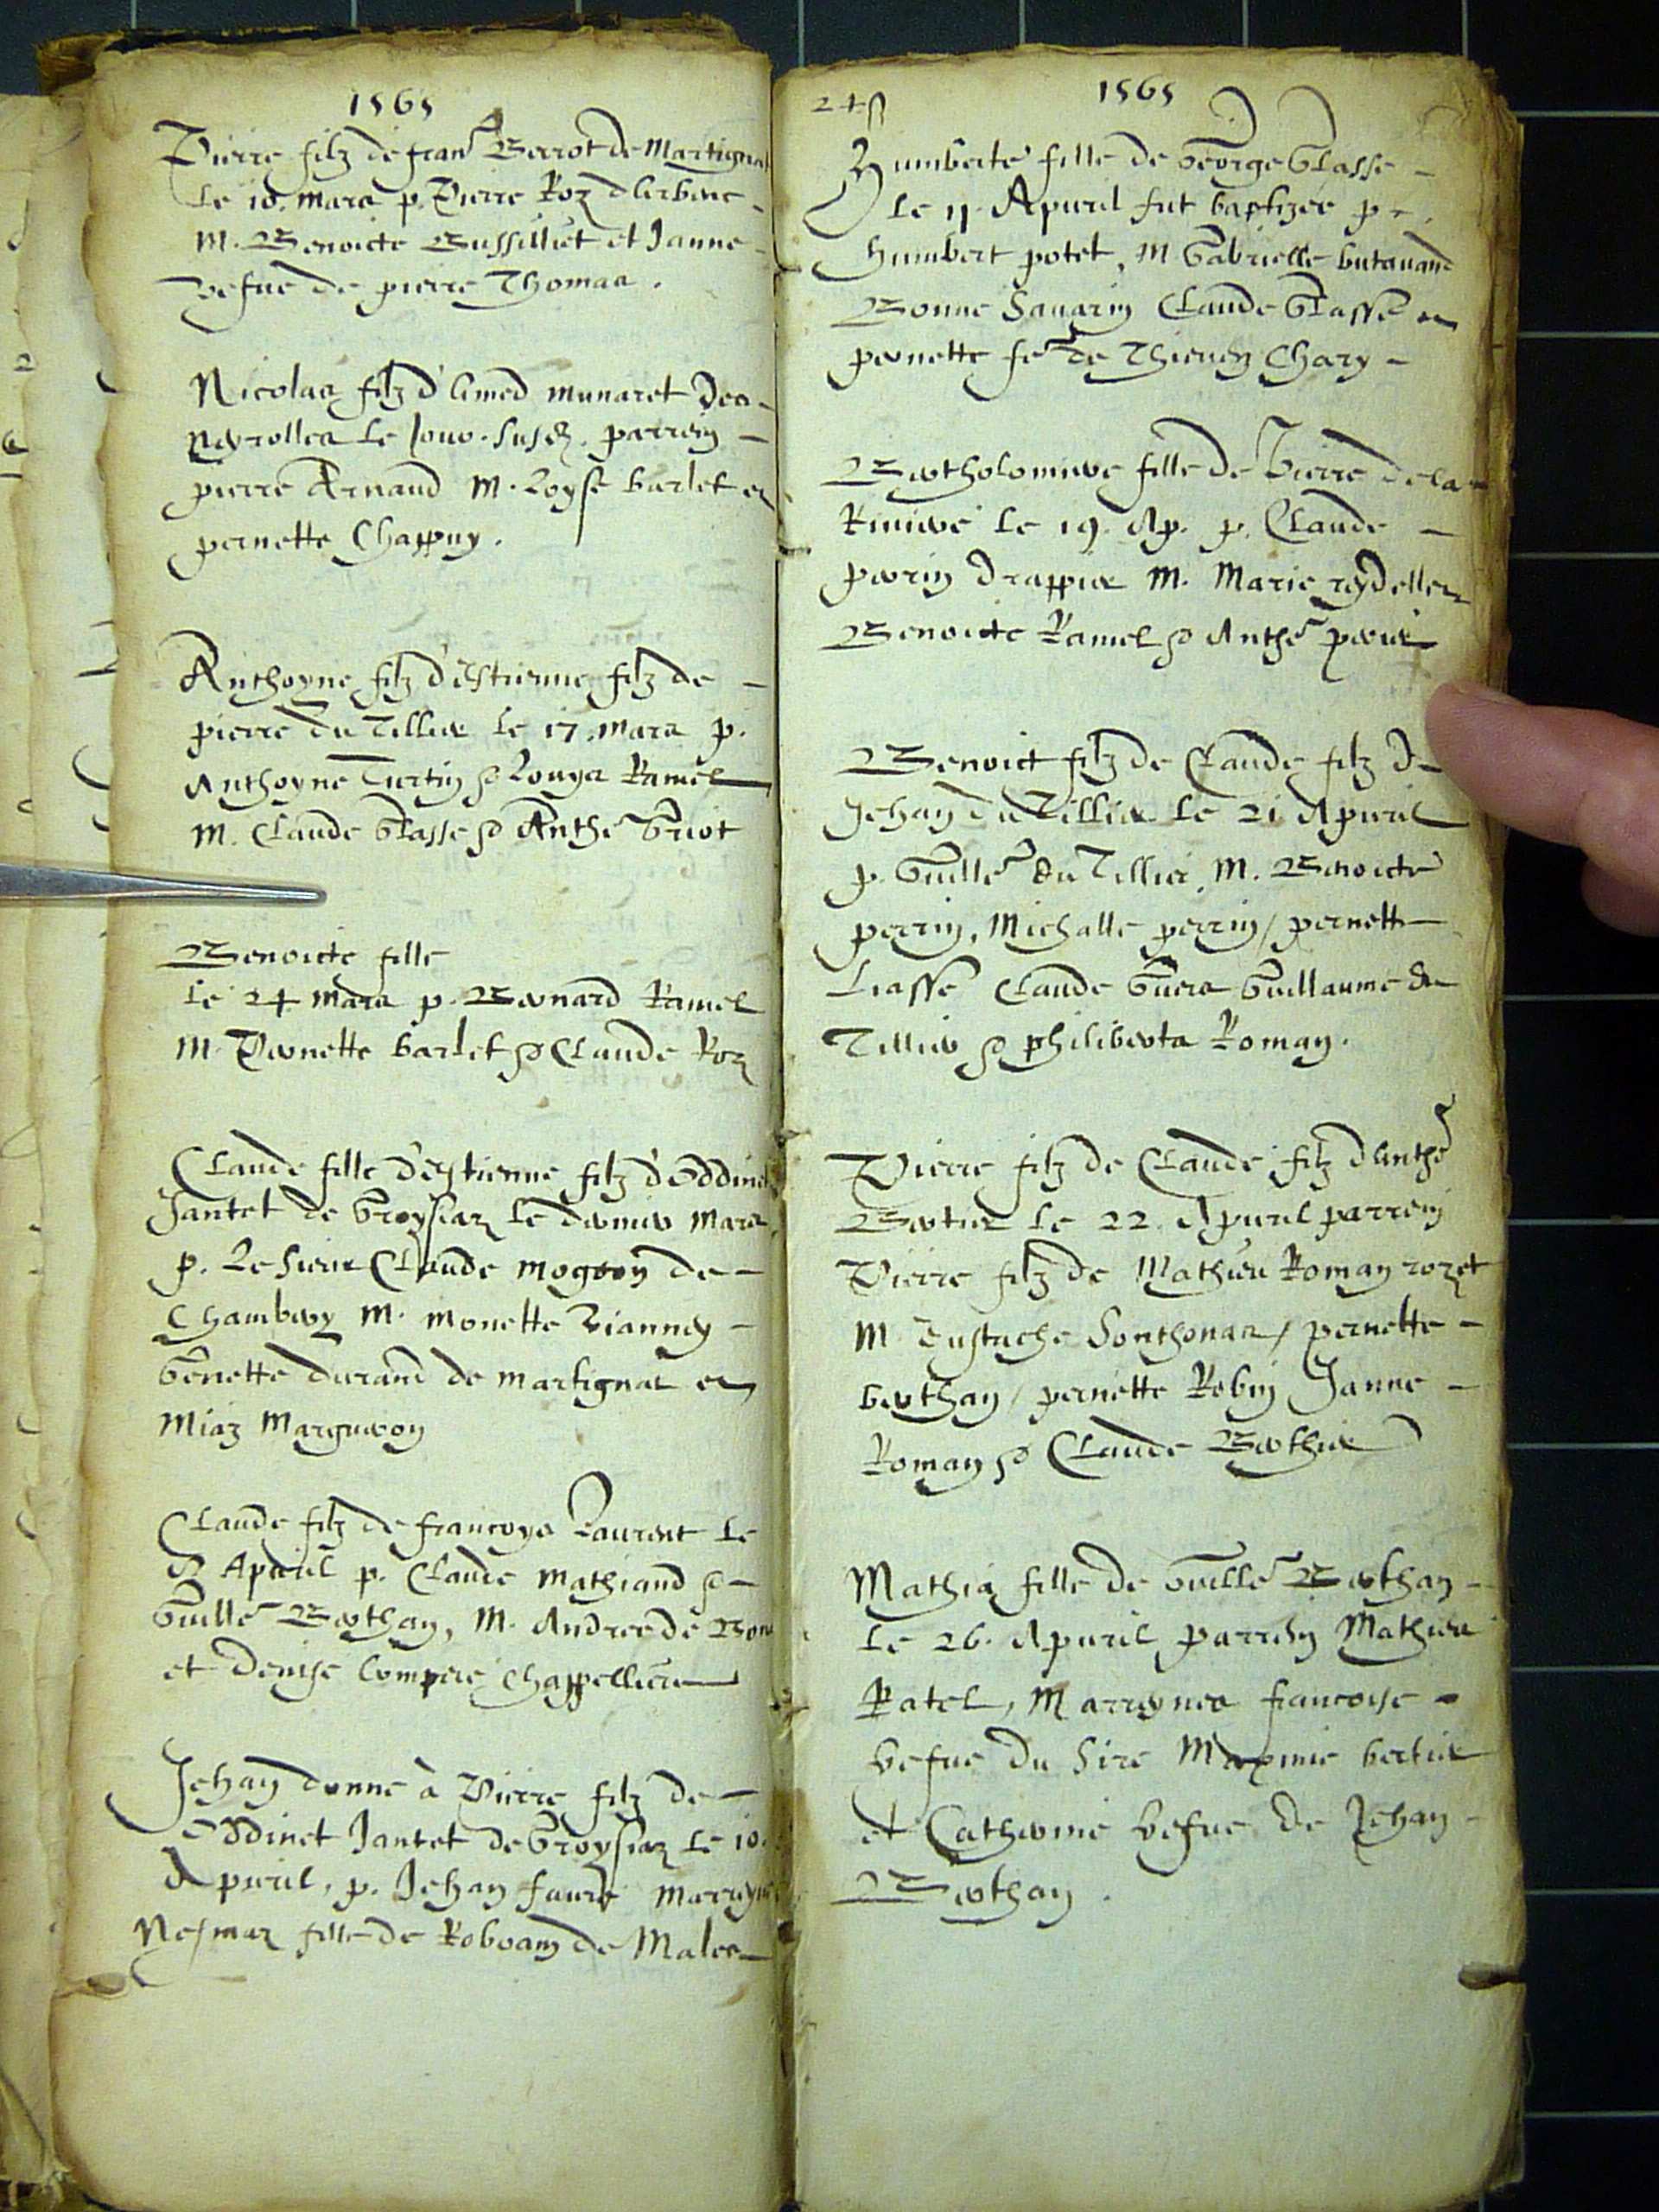 1565
Pierre filz de fran Berrot de Martigna
Le 10. mars p. Pierre Roz
M. Benoicte Bussilliet et Janne
vefue de pierre Thomas.
Nicolas filz d'Aimed munaret des
Neyrolles le jour susd. parrein
pierre Arnaud M. Loyse barlet et
pernette Chappuy.
Anthoyne filz d'Estienne filz de
pierre du Tillier le 17. mars p.
Anthoyne Tiertin et Louys Ramel
M. Claude Classe et Anthe Griot
Benoicte fille
le 24 mars p. Bernard Ramel
M. Pernette barlet et Claude Roz
Claude fille d'Estienne filz d'Oddinet
Jantet de Groysiaz le dernier mars
p. Le Sieur Claude mogson de
Chambery M. monette Vianney
Genette durand de martignat et
Miaz Margueron
Claude filz de francoys Laurent le
8 Apuril p. Claude mathiand et
Guille Berthan, M. Andree de Bon
et denise Compere Chappelliere
Jehan donne à Pierre filz de
Oddinet Jantet de Groysiaz le 10.
Apuril, p. Jehan faure Marreyne
Nesmaz fille de Roboam de Males
24
1565
Humberte fille de George Classe
Le 11. Apuril fut baptizee p
humbert potet, M Gabrielle butauand
Bonne Sauarin Claude Classe et
pernette fe de Thieuen Chary
Bertholomiere fille de Pierre de la
Riuiere le 19. Ap. p. Claude
perrin drappier M. Marie reydellet
Benoicte Ramel et Anthe perier
Benoict filz de Claude filz d
Jehan du Tillier le 21 Apuril
p. Guille du Tillier, M. Benoicte
perrin, Michalle perrin / pernette
Liasse Claude Guers Guillaume du
Tillier et philiberta Roman.
Pierre filz de Claude filz d'Anthe
Bertier le 22. Apuril parrein
Pierre filz de Mathieu Roman rozet
M. Eustache Sonthonas / pernette
berthan / pernette Robin Janne
Roman et Claude Berthier
Mathiaz fille de Guille Berthan
Le 26. Apuril parrein Mathieu
Ratel, Marreynes francoise
vefue du Sire Maximie bertier
et Catherine vefue de Jehan
Berthan.